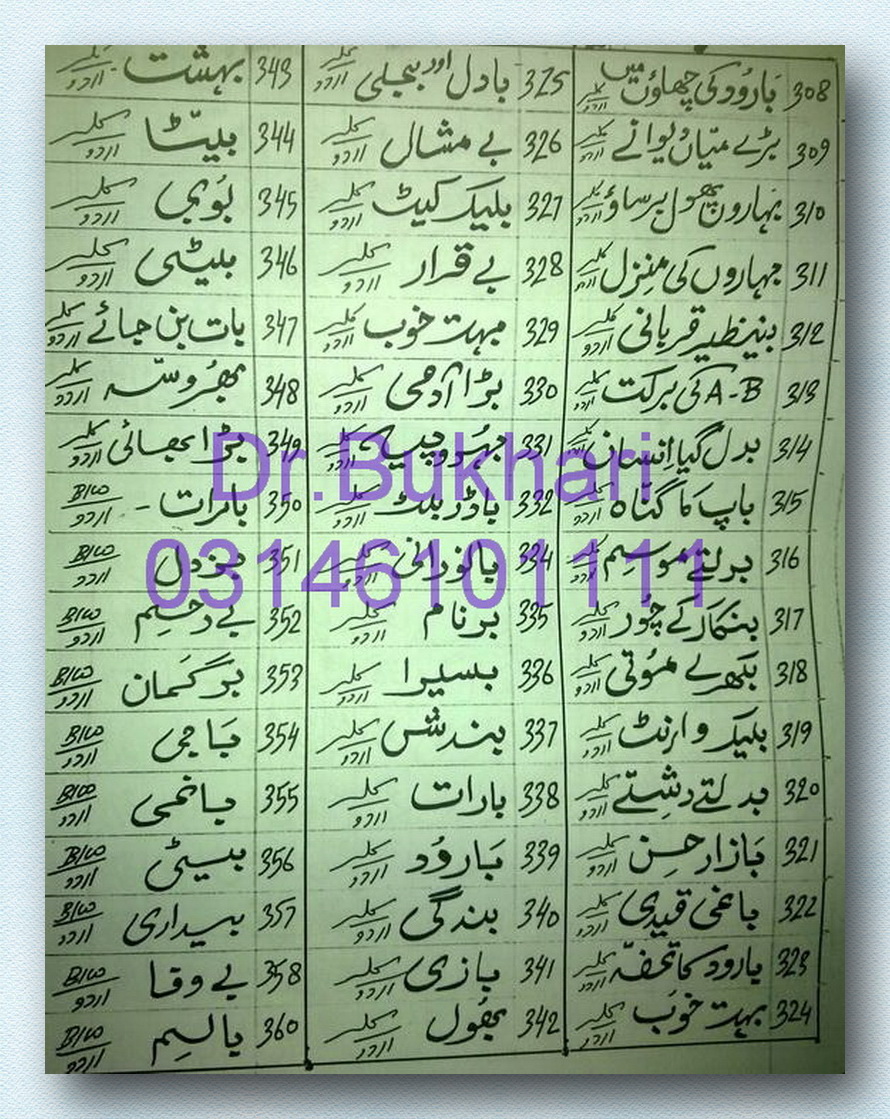 308 بارود کی چھاؤں میں کلر اردو
309 بڑے میاں دیوانے کلر اردو
310 بہارو پھول برساؤ کلر اردو
311 بہاروں کی منزل کلر اردو
312 بینظیر قربانی کلر اردو
313 A-B کی برکت کلر اردو
314 بدل گیا انسان کلر اردو
315 باپ کا گناہ کلر اردو
316 بدلتے موسم کلر اردو
317 کے چور کلر اردو
318 بکھرے موتی کلر اردو
319 بلیک وارنٹ کلر اردو
320 بدلتے رشتے کلر اردو
321 بازار حسن کلر اردو
322 باغی قیدی کلر اردو
323 بارود کا تحفہ کلر اردو
324 بہت خوب کلر اردو
325 بادل اور بجلی کلر اردو
326 بے مشال کلر اردو
327 بلیک کیٹ کلر اردو
328 بے قرار کلر اردو
329 بہت خوب کلر اردو
330 بڑا آدمی کلر اردو
331 بہروپیہ کلر اردو
332 باڈر بلٹ کلر اردو
334 بانورانی کلر اردو
335 بدنام کلر اردو
336 بسیرا کلر اردو
337 بندش کلر اردو
338 بارات کلر اردو
339 بارود کلر اردو
340 بندگی کلر اردو
341 بازی کلر اردو
342 بھول کلر اردو
343 بہشت کلر اردو
344 بیٹا کلر اردو
345 بوبی کلر اردو
346 بیٹی کلر اردو
347 بات بن جائے کلر اردو
348 بھروسہ کلر اردو
349 بڑا بھائی کلر اردو
350 بارات - B/W اردو
351 بزدل B/W اردو
352 بے رحم B/W اردو
353 بدگمان B/W اردو
354 باجی B/W اردو
355 باغی B/W اردو
356 بیٹی B/W اردو
357 بیداری B/W اردو
358 بے وفا B/W اردو
360 بالم B/W اردو
Dr.Bukhari
03146101111